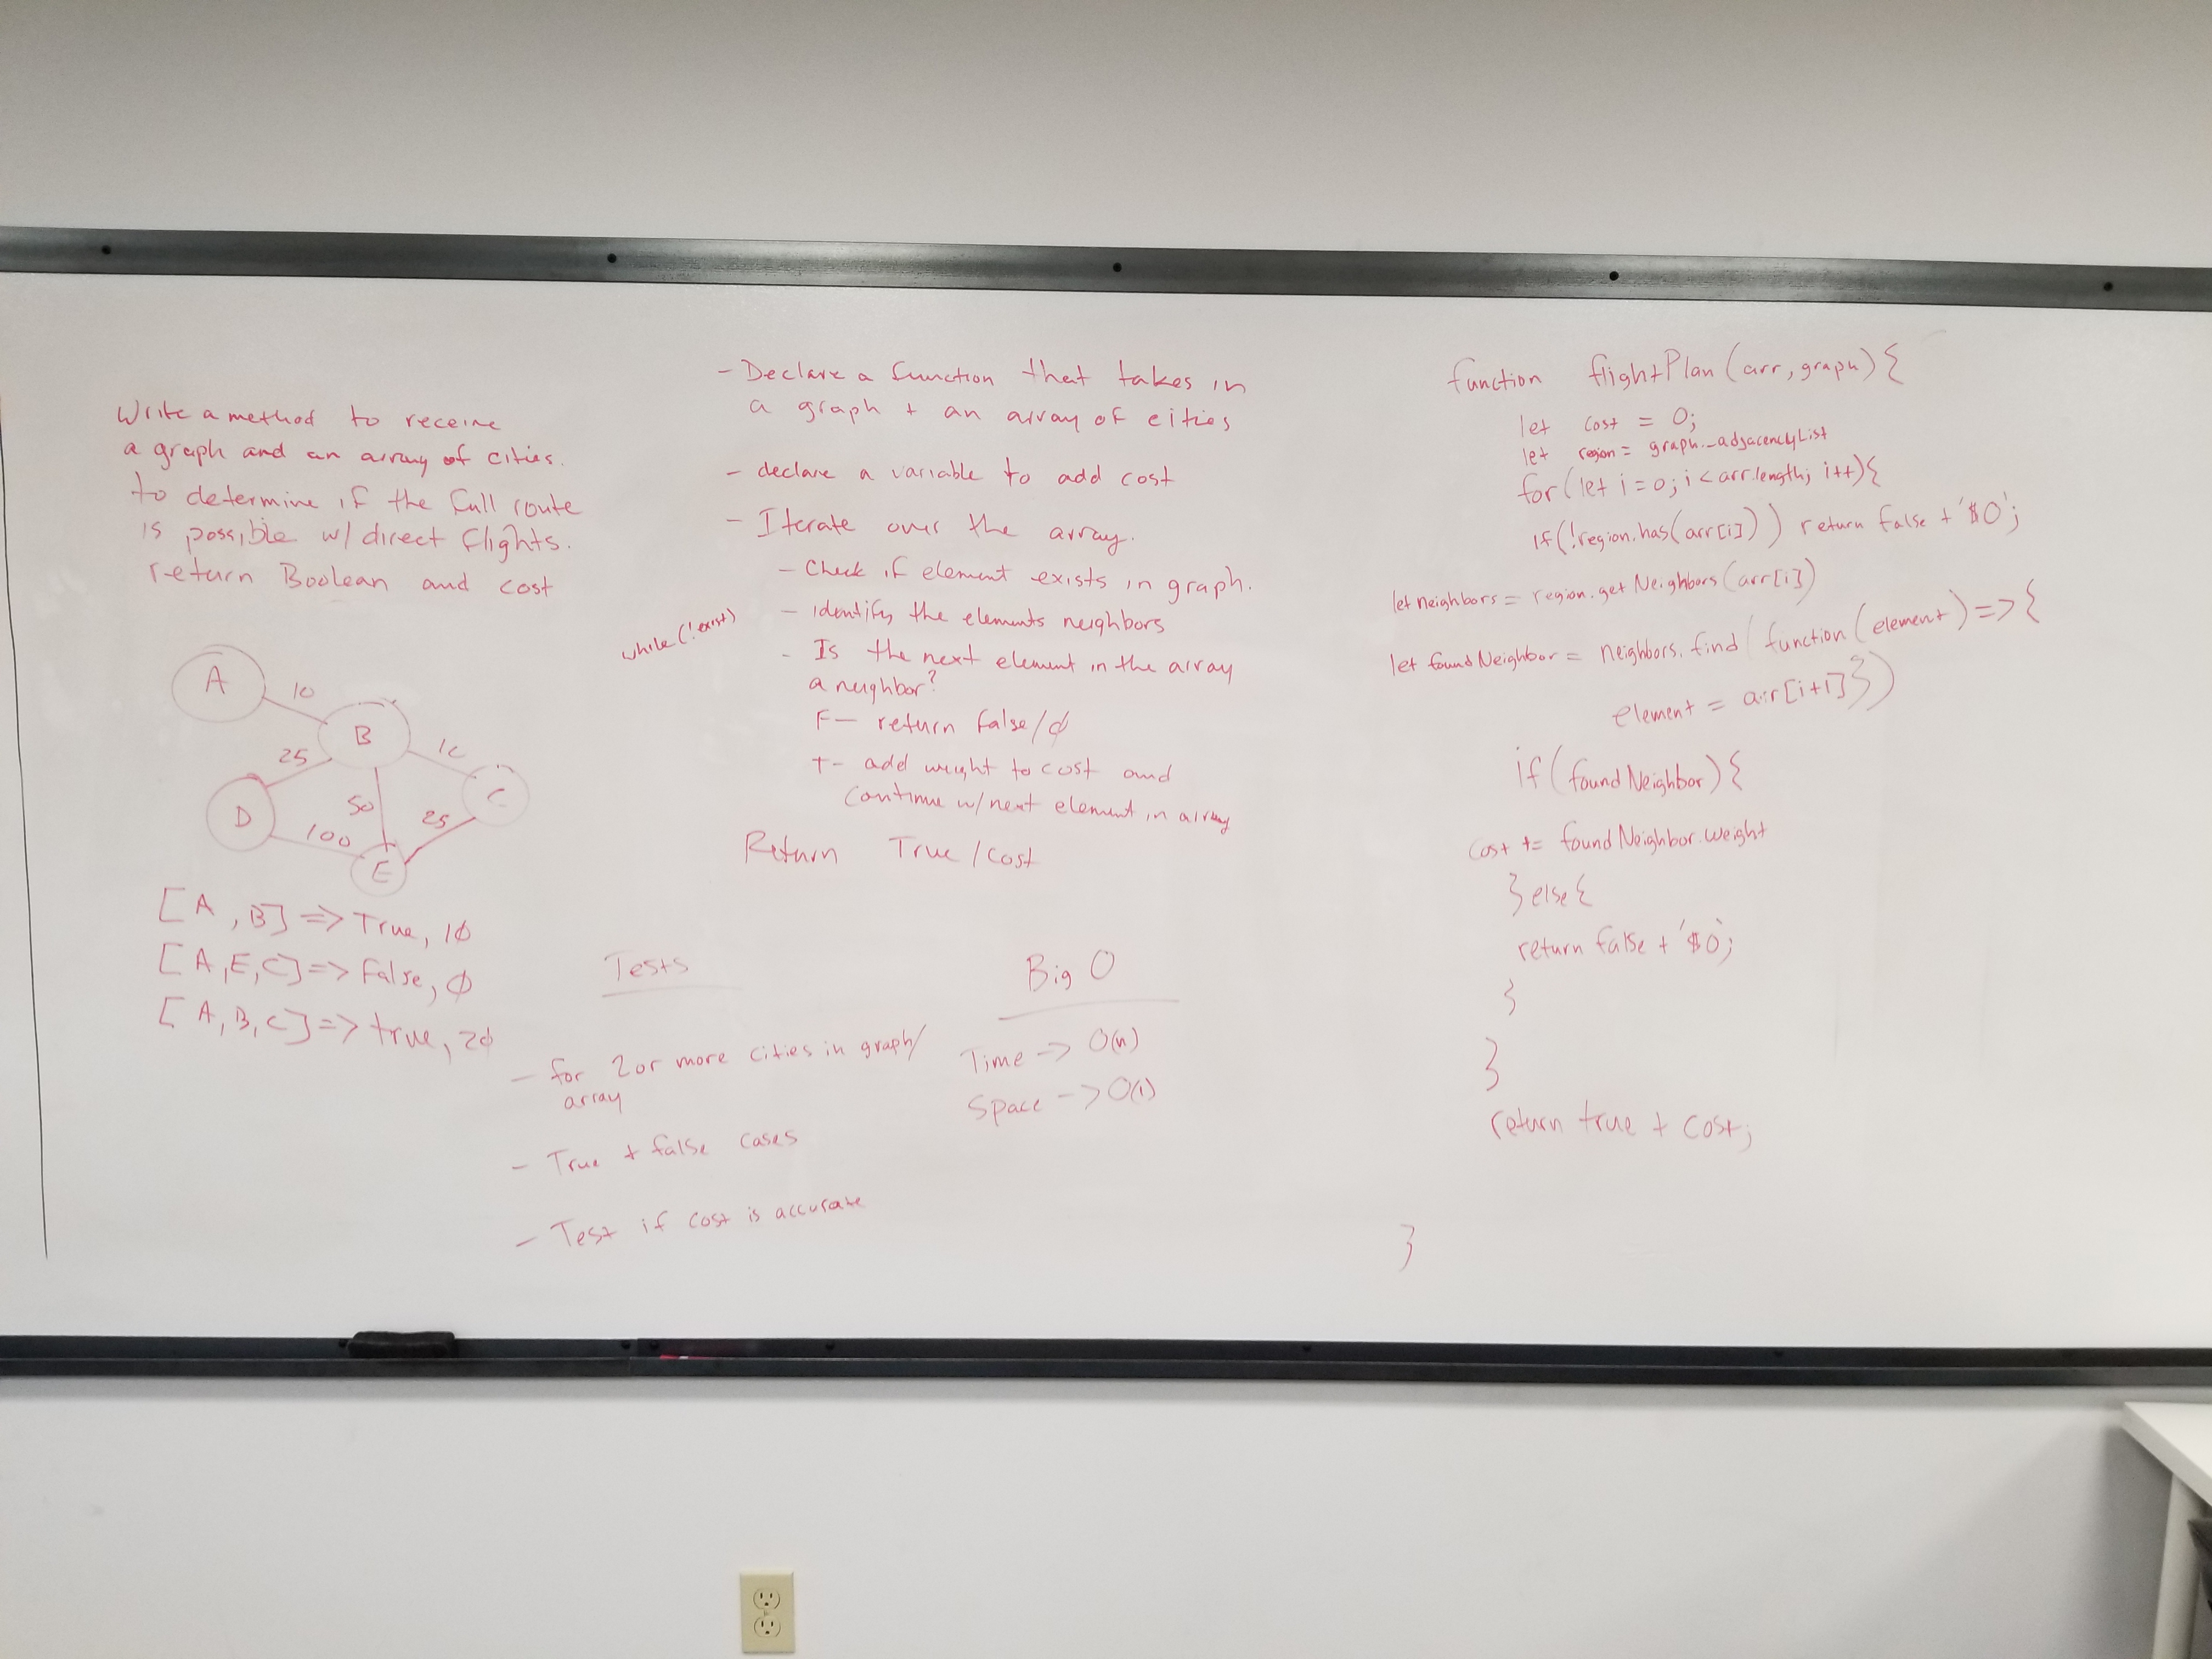 Write a method to receive
a graph and an array of cities.
to determine if the full route
is possible w/ direct flights.
return Boolean and cost
A
10
B
25
10
D
50
25
C
100
E
[A, B] => True, 10
[A, E, C] => False, 0
[A, B, C] => true, 20
- Declare a function that takes in
a graph + an array of cities
- declare a variable to add cost
- Iterate over the array.
- Check if element exists in graph.
- identify the elements neighbors
while (!exist)
- Is the next element in the array
a neighbor?
F- return false/0
T- add weight to cost and
continue w/next element in array
Return True / cost
Tests
- for 2 or more cities in graph/
array
- True + false cases
- Test if cost is accurate
Big O
Time -> O(n)
Space -> O(1)
function flightPlan (arr, graph) {
let cost = 0;
let region = graph._adjacencyList
for (let i = 0; i < arr.length; i++) {
if (!region.has(arr[i])) return false + '$0';
let neighbors = region.getNeighbors (arr[i])
let foundNeighbor = neighbors.find (function (element) => {
element = arr[i+1] })
if (foundNeighbor) {
cost += foundNeighbor.weight
} else {
return false + '$0';
}
}
return true + cost;
}